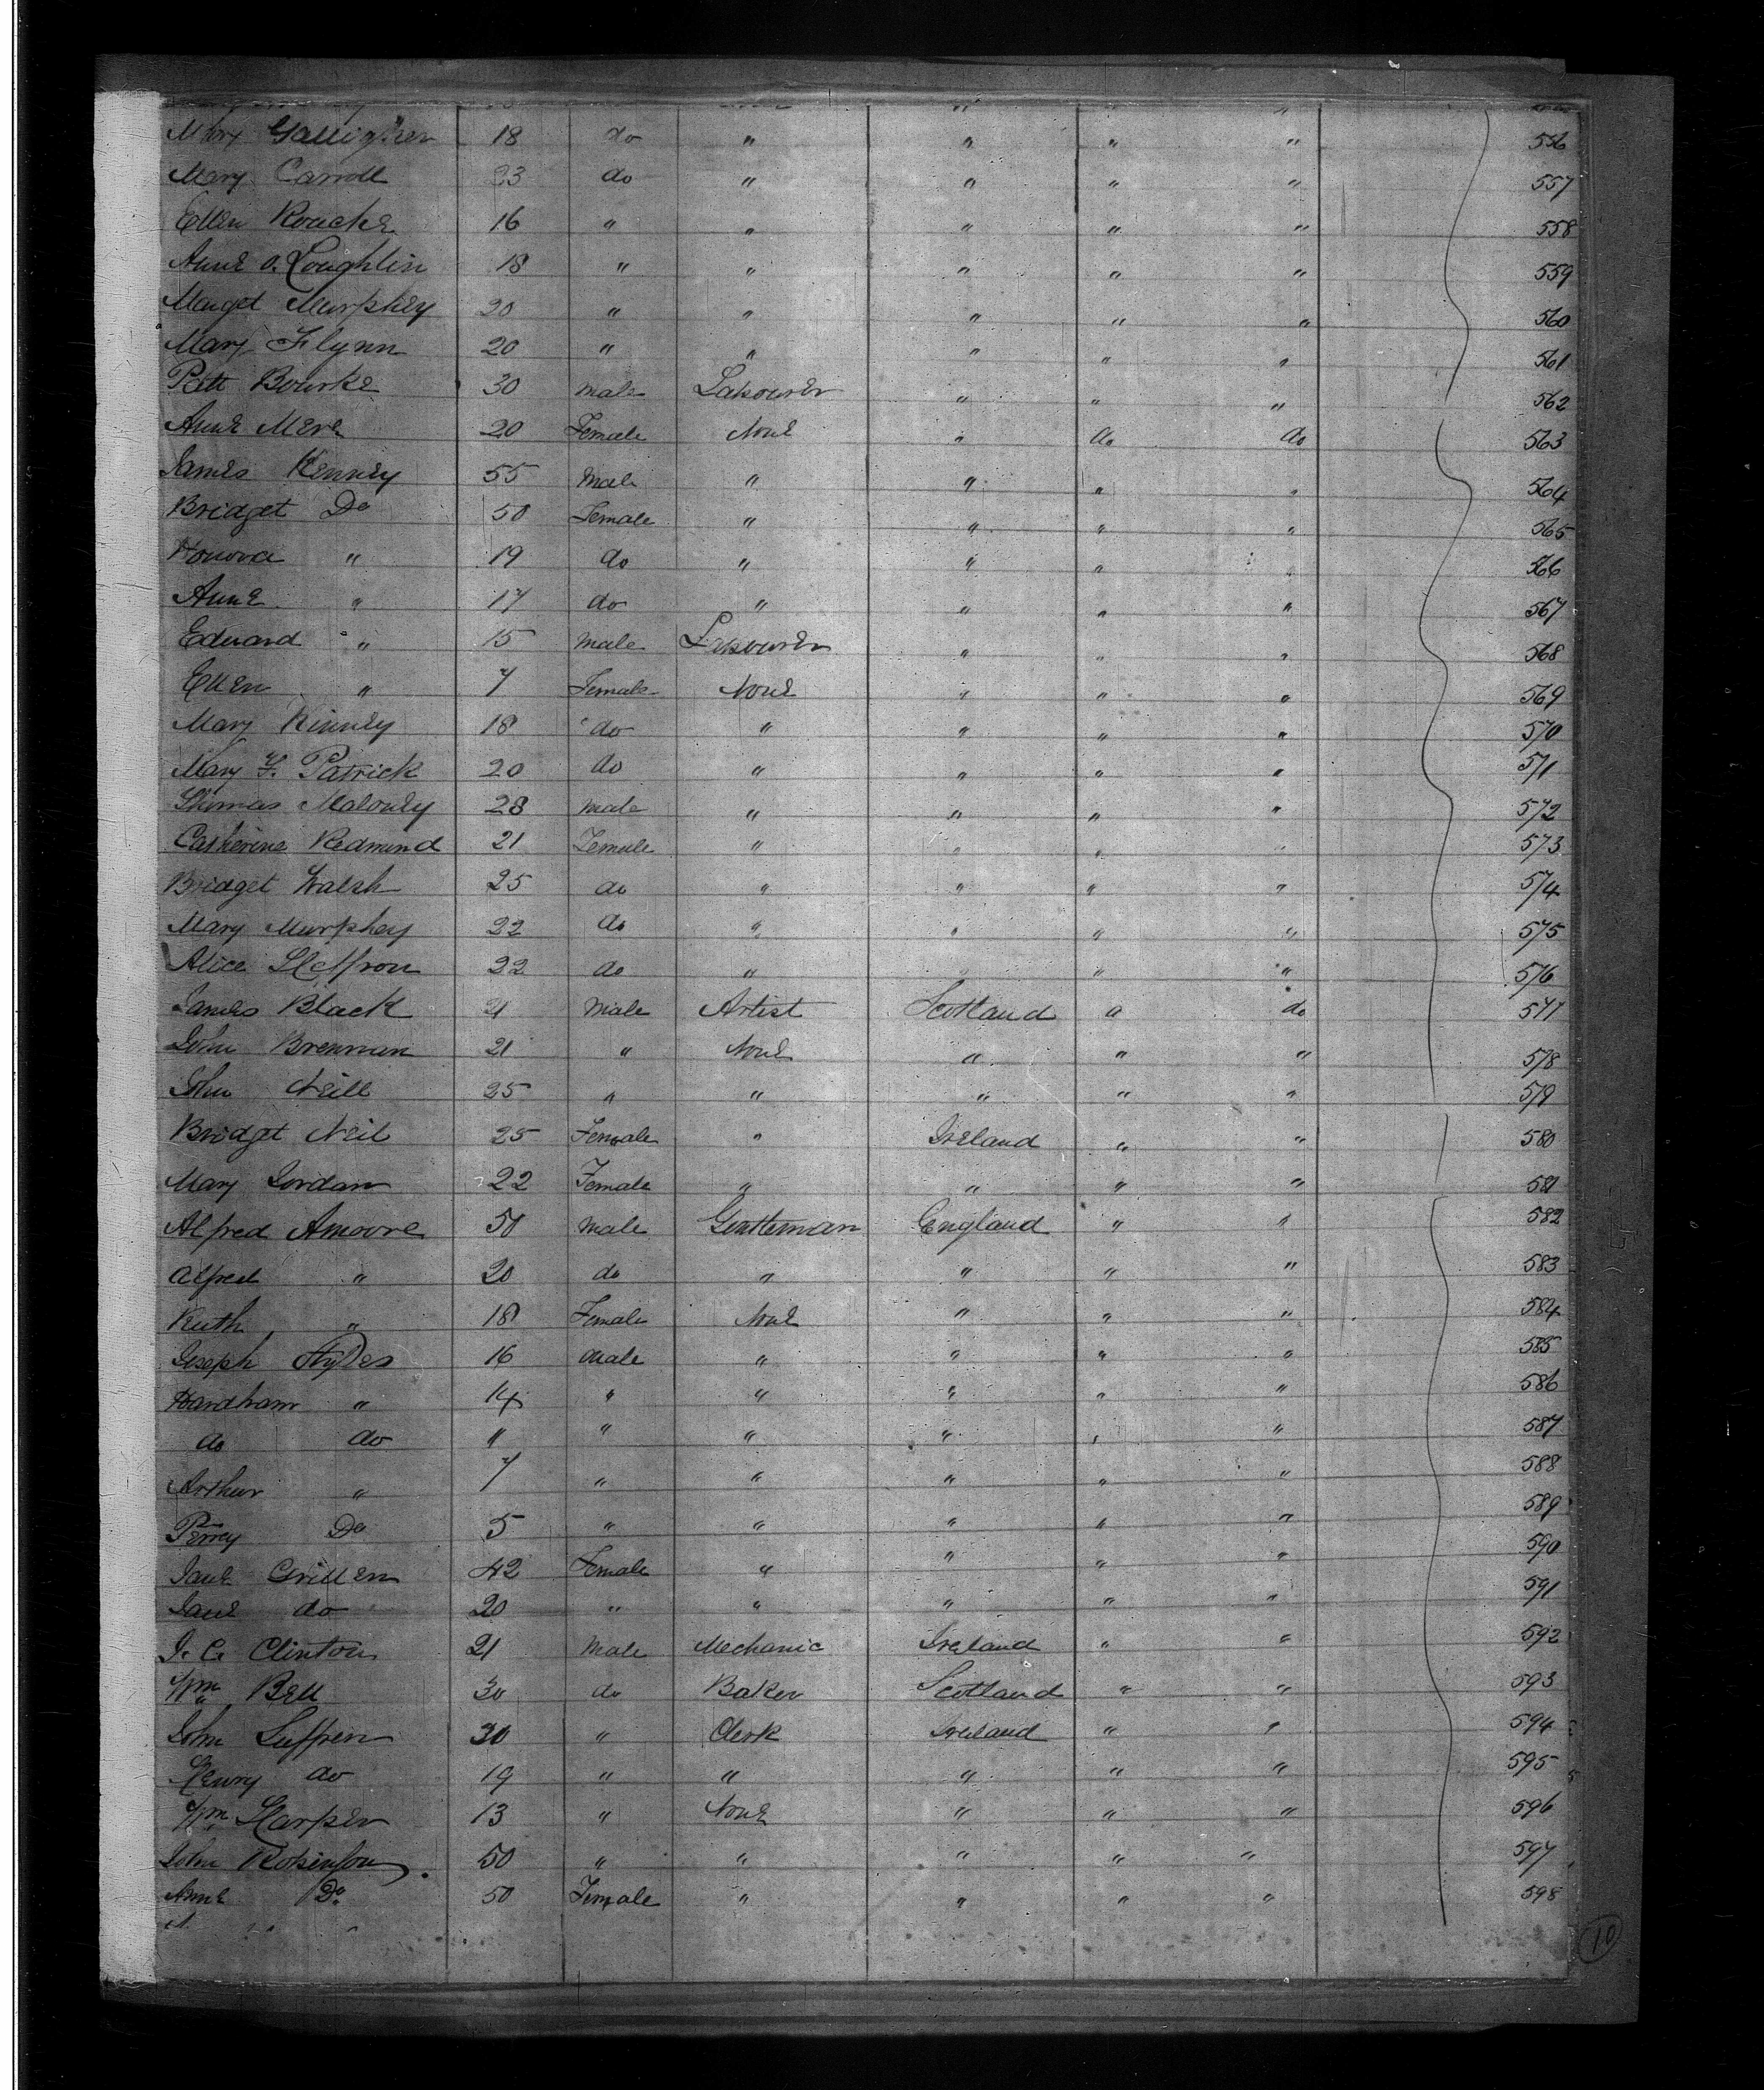 Mary Galligher 18 do " " " " 556
Mary Carroll 23 do " " " " 557
Ellen Roache 16 " " " " " 558
Anne O. Loughlin 18 " " " " " 559
Marget Murphey 20 " " " " " 560
Mary Flynn 20 " " " " " 561
Patt Bourke 30 male Labourer " " " 562
Anne Mere 20 Female None " do do 563
James Kenney 55 male " " " " 564
Bridget Do 50 Female " " " " 565
Honora " 19 do " " " " 566
Anne " 17 do " " " " 567
Edward " 15 male Labourer " " " 568
Ellen " 7 Female None " " " 569
Mary Kinney 18 do " " " " 570
Mary F. Patrick 20 do " " " " 571
Thomas Maloney 28 male " " " " 572
Catherine Redmond 21 Female " " " " 573
Bridget Walsh 25 do " " " " 574
Mary Murphey 22 do " " " " 575
Alice Heffron 22 do " " " " 576
James Black 21 Male Artist Scotland do 577
John Brennan 21 " None " " " 578
John Neill 25 " " " " " 579
Bridget Neil 25 Female " Ireland " " 580
Mary Jordan 22 Female " " " " 581
Alfred Amoore 50 male Gentleman England " " 582
Alfred " 20 do " " " " 583
Ruth " 18 Female None " " " 584
Joseph Hydes 16 male " " " " 585
Hardham " 14 " " " " " 586
do do " " " " " " 587
Arthur " 7 " " " " " 588
Perrey Do 5 " " " " " 589
Jane Grillen 42 Female " " " " 590
Jane do 20 " " " " " 591
J. C. Clinton 21 Male Mechanic Ireland " " 592
Wm Bell 30 do Baker Scotland " " 593
John Suffren 30 " Clerk Ireland " " 594
Henry do 19 " " " " " 595
Wm Harper 13 " None " " " 596
John Robinson 50 " " " " " 597
Anne Do 50 Female " " " " 598
10